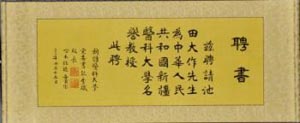 聘書
茲聘請池
田大作先生
為中華人民
共和國新疆
醫科大學名
譽教授
此聘
新疆醫科大學